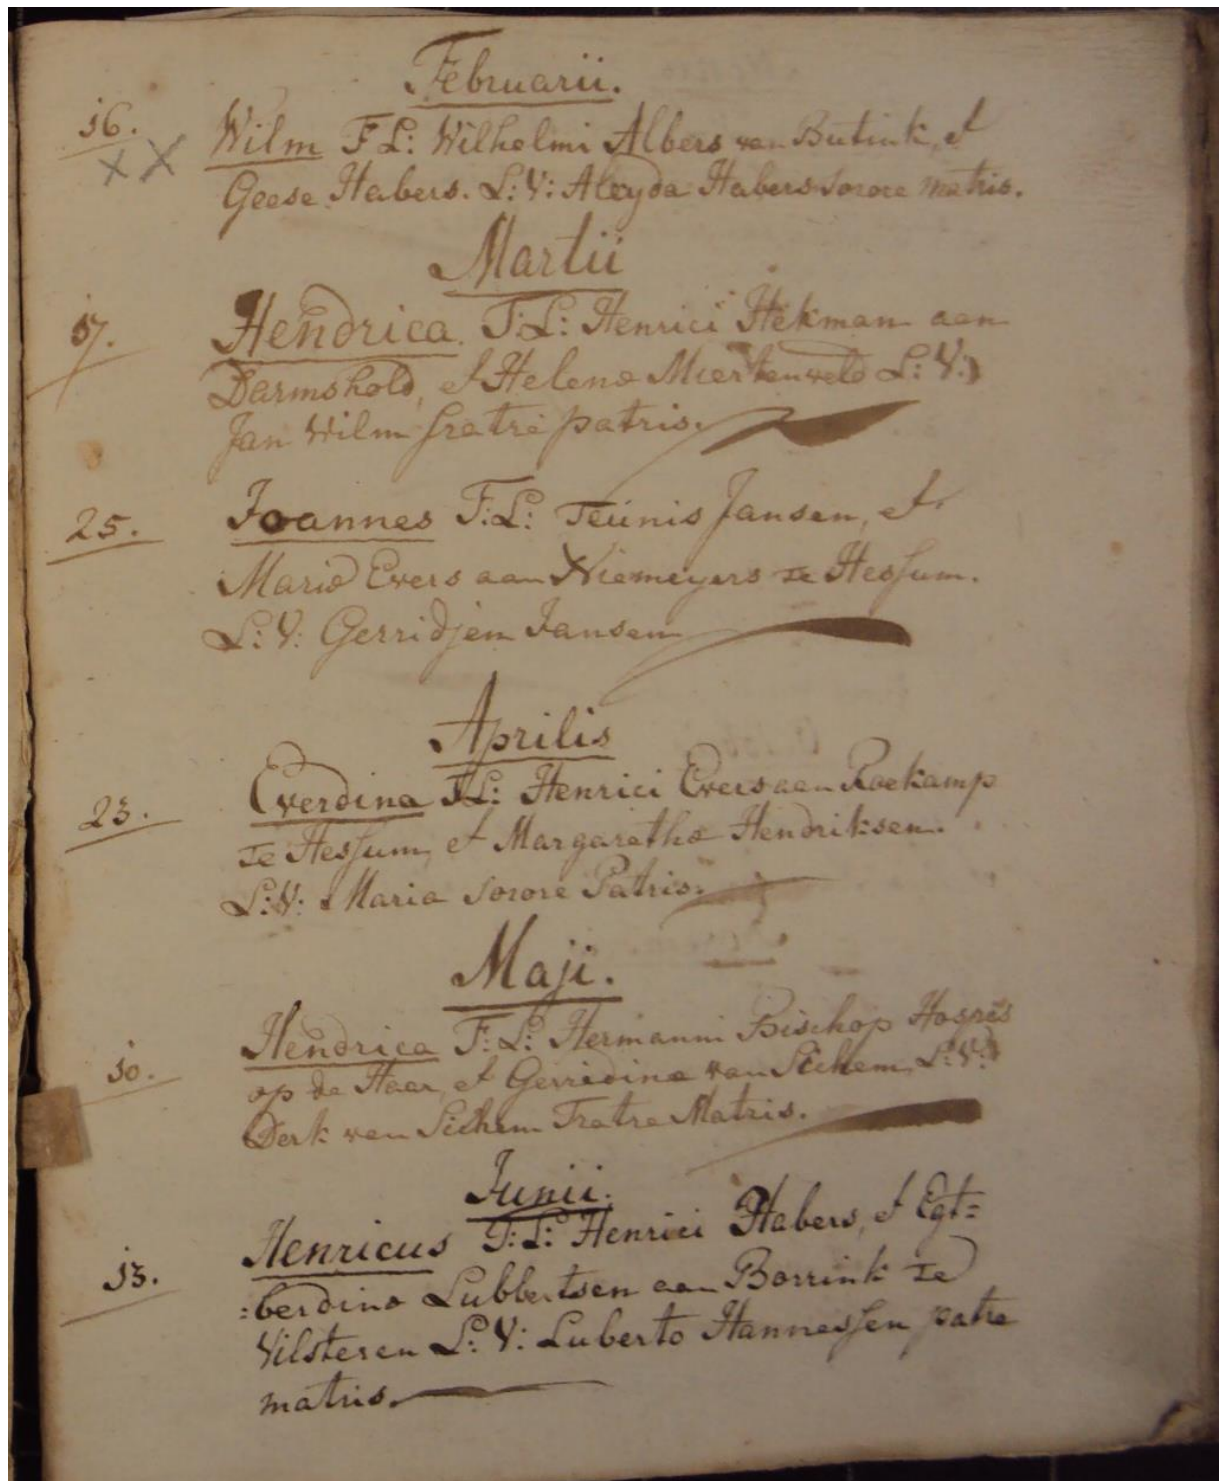 Februarii.
16. Wilm F L: Wilhelmi Albers van Butink, et
Geese Habers. L: V: Aleyda Habers Sorore Matris.
Martii
17. Hendrica. F: L: Henrici Hekman aan
Darmshold, et Helena L: V:
Jan Wilm fratre patris.
25. Joannes F: L: Teunis Jansen, et
Maria Evers aan Niemeyers te Hessum.
L: V: Gerridjen Jansen
Aprilis
23. Everdina F L: Henrici Evers aan Roekamp
te Hessum, et Margaretha Hendriksen.
L: V: Maria Sorore Patris.
Maji.
10. Hendrica F: L: Hermanni Bischop Hospes
op de Haar, et Gerridina van Sichem, L: V:
Derk van Sichem Fratre Matris.
Junii.
13. Henricus F: L: Henrici Habers, et Egt=
=berdina Lubbertsen aan Borrink te
Vilsteren L: V: Luberto Hannessen patre
matris.